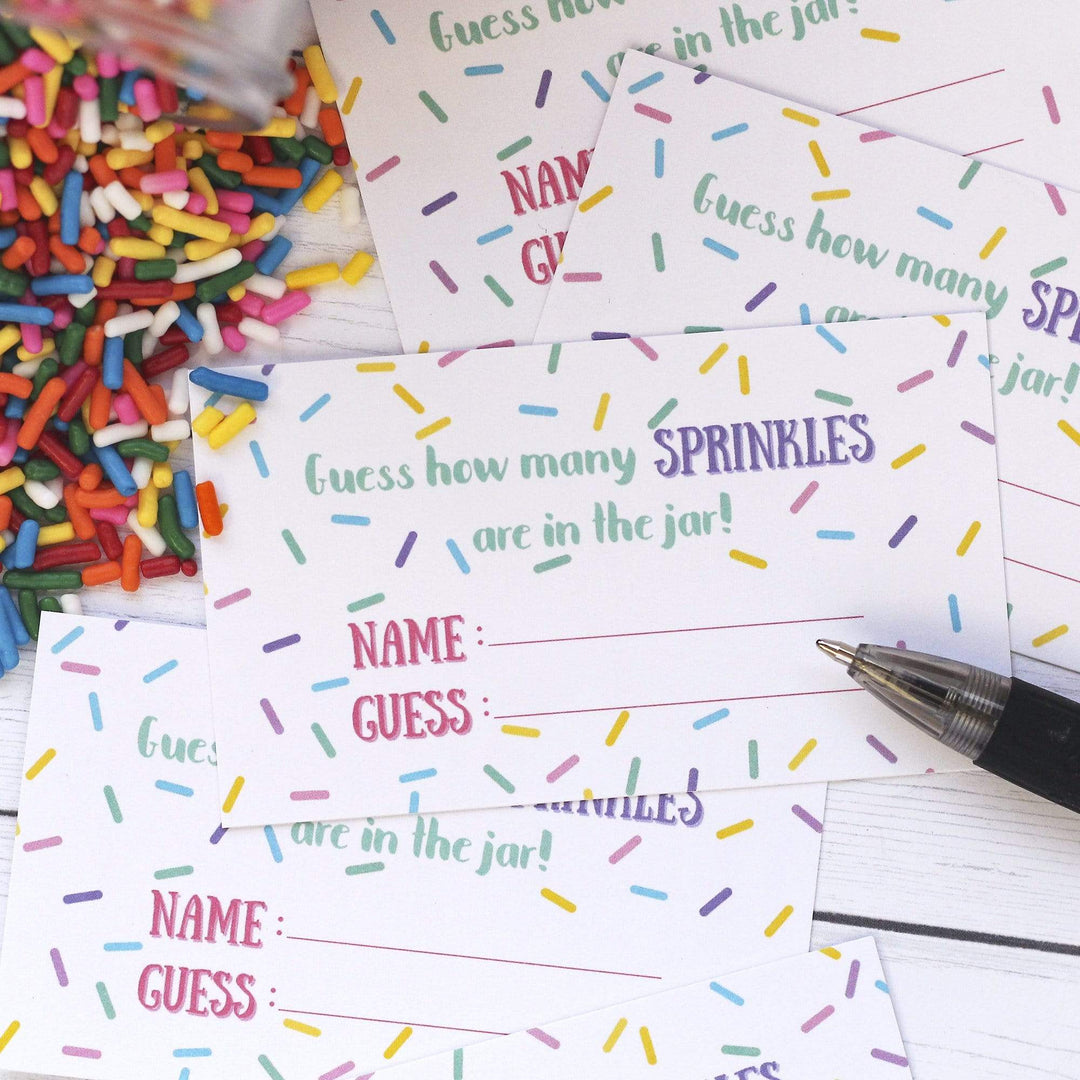 Guess how
are in the jar!
NAM
GU
Guess how many SP
are
jar!
Guess how many SPRINKLES
are in the jar!
NAME:
GUESS:
Gues
are in the jar!
NAME:
GUESS: